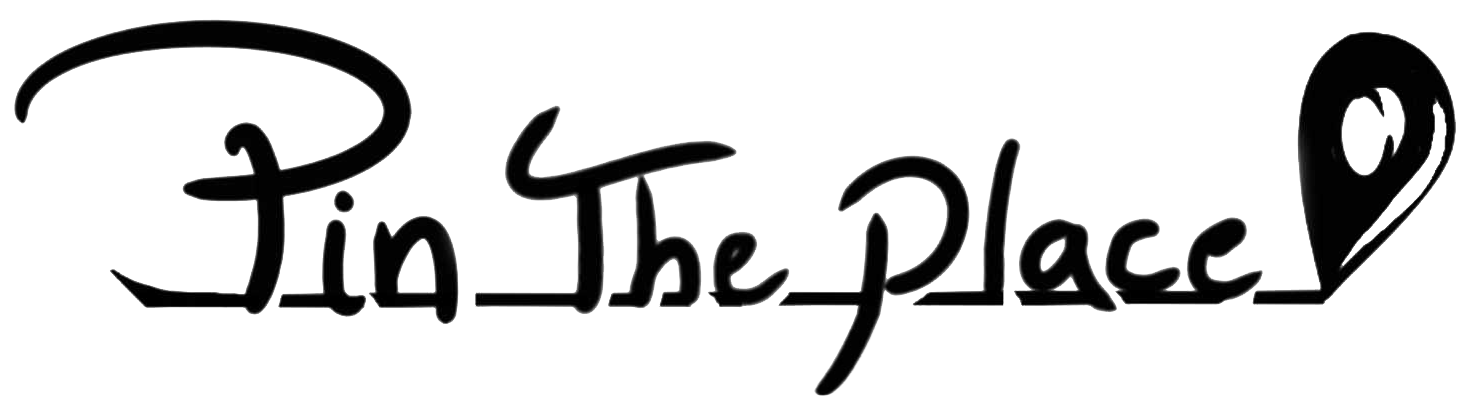 Pin The Place